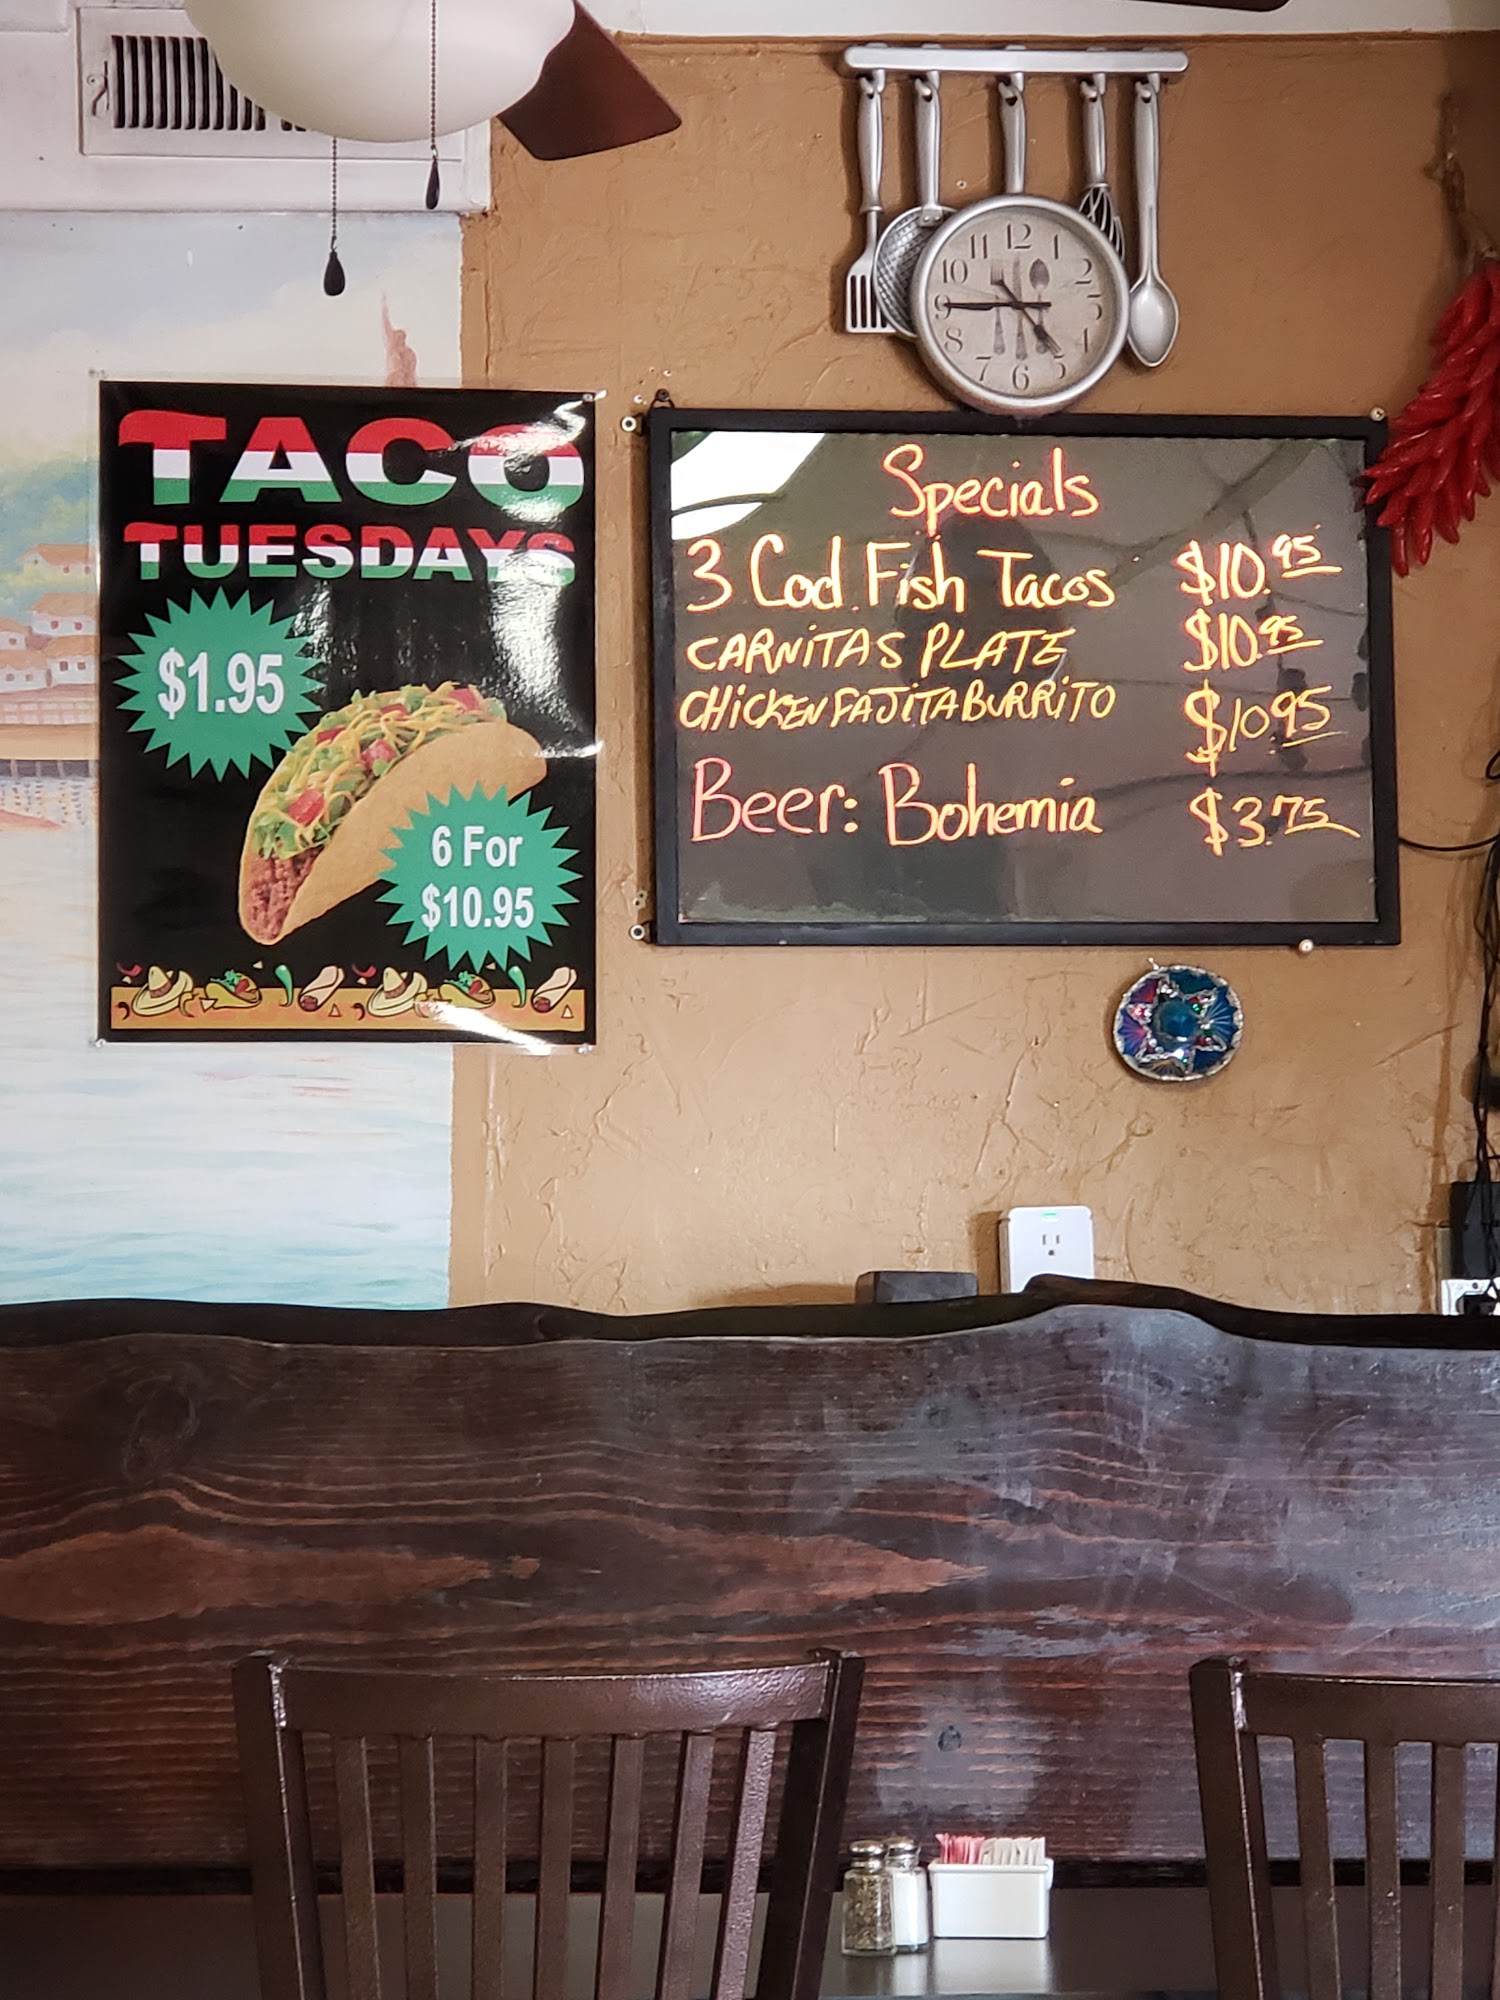 TACO
TUESDAYS
$1.95
6 For
$10.95
12
1
2
3
4
5
6
7
8
9
10
11
Specials
3 Cod Fish Tacos $10.95
CARNITAS PLATE $10.95
CHICKEN FAJITA BURRITO $10.95
Beer: Bohemia $3.75